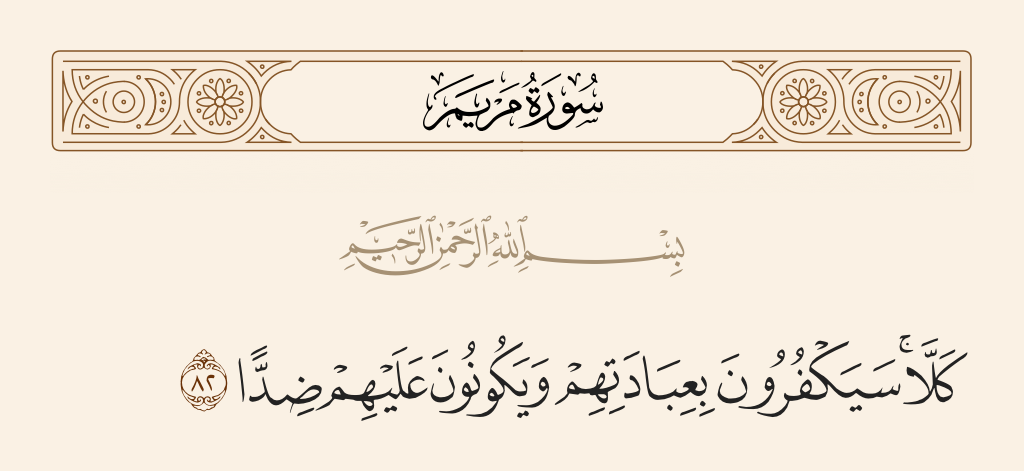 سُورَةُ مَرْيَمَ
بِسْمِ ٱللَّهِ ٱلرَّحْمَٰنِ ٱلرَّحِيمِ
كَلَّا ۚ سَيَكْفُرُونَ بِعِبَادَتِهِمْ وَيَكُونُونَ عَلَيْهِمْ ضِدًّا ٨٢